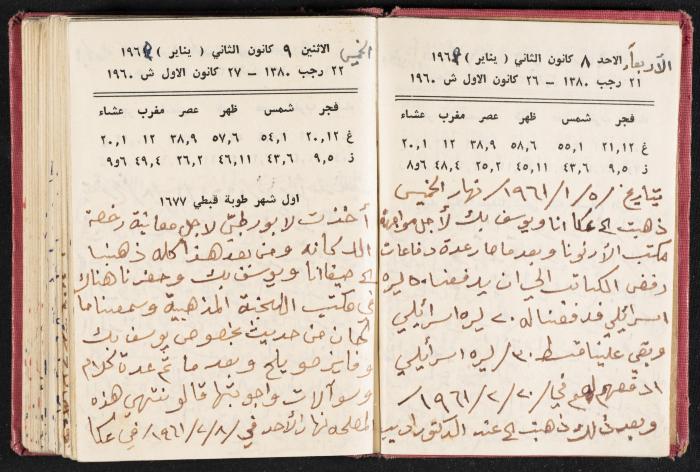 الاربعاء الاحد ٨ كانون الثاني ( يناير ) ١٩٦٤
٢١ رجب ١٣٨٠ – ٢٦ كانون الاول ش ١٩٦٠
فجر شمس ظهر عصر مغرب عشاء
غ ٢١,١٢ ٥٥,١ ٥٨,٦ ٣٨,٩ ١٢ ٢٠,١
ز ٩,٥ ٤٣,٦ ٤٥,١١ ٢٥,٢ ٤٨,٤ ٨و٦
بتاريخ /٥/١/١٩٦١ نهار الخميس
ذهبت الى عكا انا ويوسف بك لأجل مواجهة
مكتب الأرنونا وبعد ما صار عدة دفاعات
رفض المكاتب الحي ان يدفعنا ٥٠ ليره
اسرائيلي فدفعناله ٢٠ ليره اسرائيلي
وبقي علينا قسط /٣٠ ليره اسرائيلي
ادفعهم لهم في /٢٠/٢/١٩٦١
وبعد ذلك ذهبت الى عند الدكتور اديب
الخميس الاثنين ٩ كانون الثاني ( يناير ) ١٩٦٤
٢٢ رجب ١٣٨٠ – ٢٧ كانون الاول ش ١٩٦٠
فجر شمس ظهر عصر مغرب عشاء
غ ٢٠,١٢ ٥٤,١ ٥٧,٦ ٣٨,٩ ١٢ ٢٠,١
ز ٩,٥ ٤٣,٦ ٤٦,١١ ٢٦,٢ ٤٩,٤ ٩و٦
اول شهر طوبة قبطي ١٦٧٧
أخذت لابورطي لاجل معاينة رخصة
الدكانه ومن بعد هذا كله ذهبنا
الى حيفا انا ويوسف بك وحضرنا هناك
في مكتب اللجنة المذهبية وسمعنا ما
كان من حديث بخصوص يوسف بك
وفايز صويلح وبعد ما تم عدة كلام
وسوآلات واجوبتها قالو ننتهي هذه
المصلحه نهار الأحد في /٨/٢/١٩٦١ في عكا